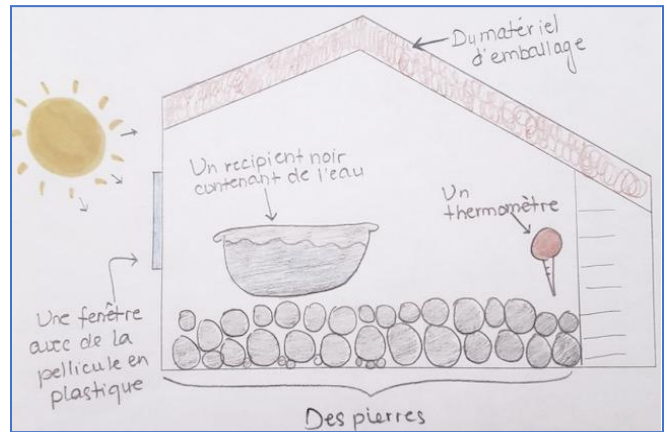 Du matériel
d'emballage
Un recipient noir
contenant de l'eau
Un
thermomètre
Une fenêtre
avec de la
pellicule en
plastique
Des pierres